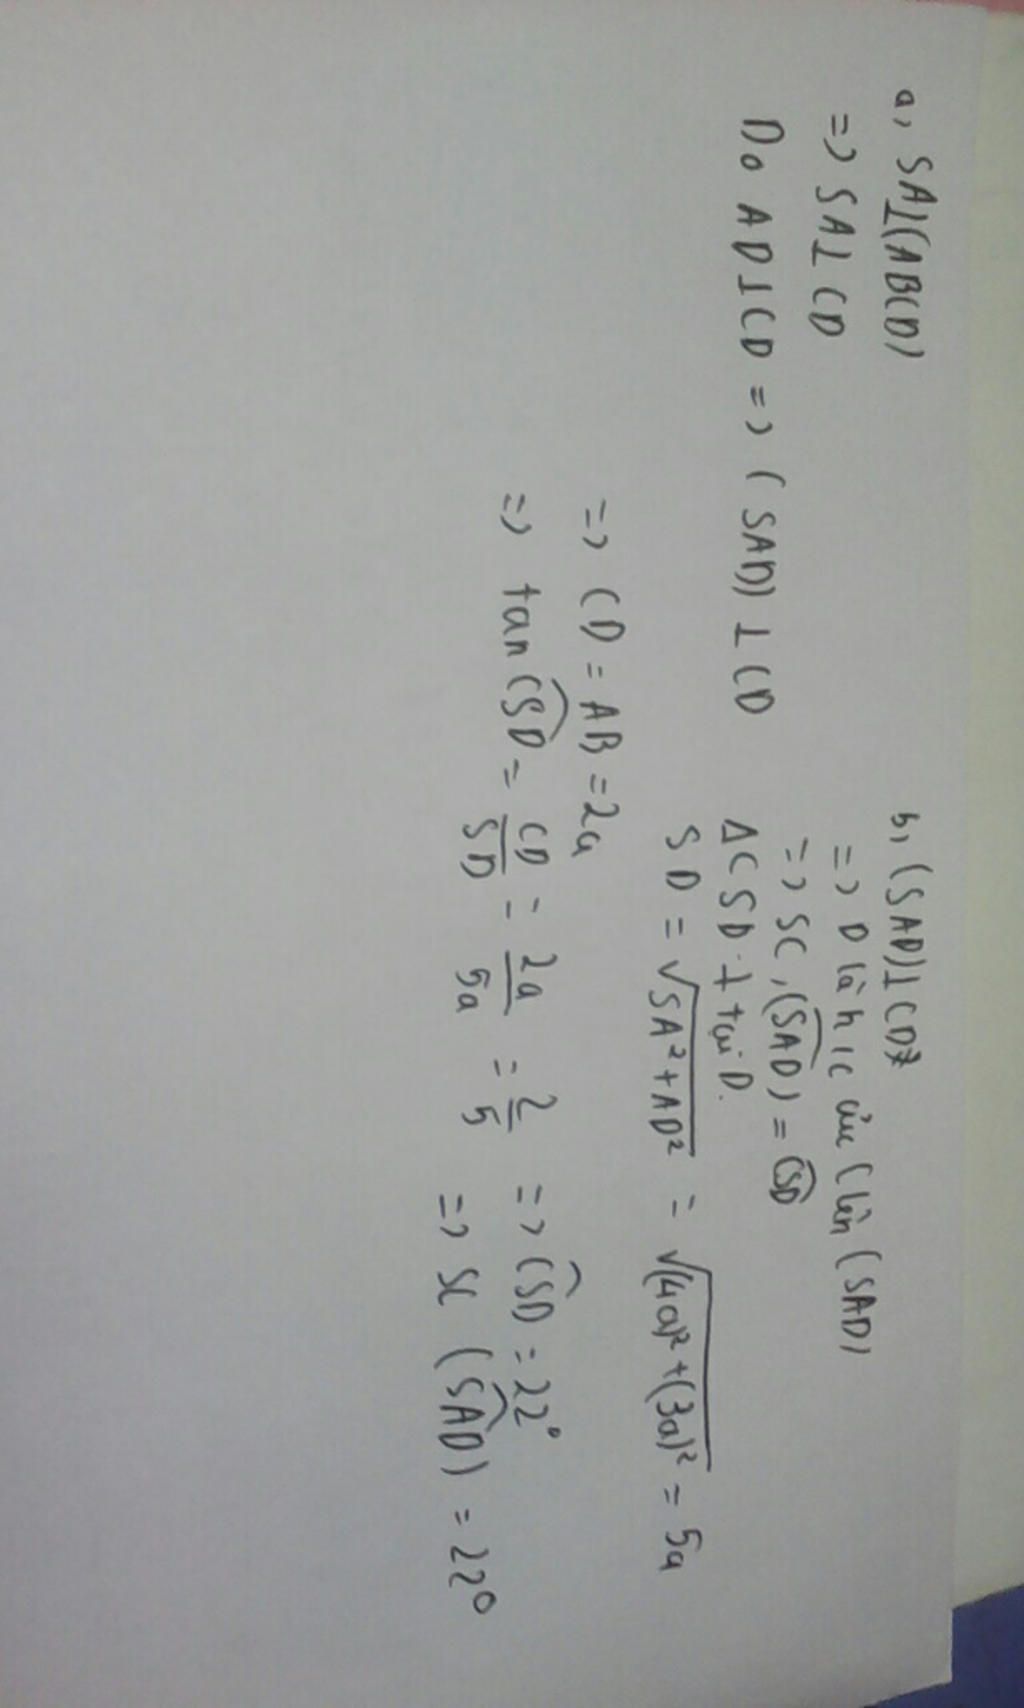 a, SA⊥(ABCD)
=> SA⊥CD
Do AD⊥CD => (SAD) ⊥ CD
b, (SAD)⊥CD
=> D là h/c của C lên (SAD)
=> SC, (SAD) = CSD
ΔCSD ⊥ tại D.
SD = √SA²+AD² = √(4a)²+(3a)² = 5a
=> CD = AB = 2a
=> tan CSD = CD/SD = 2a/5a = 2/5 => CSD = 22°
=> SC (SAD) = 22°